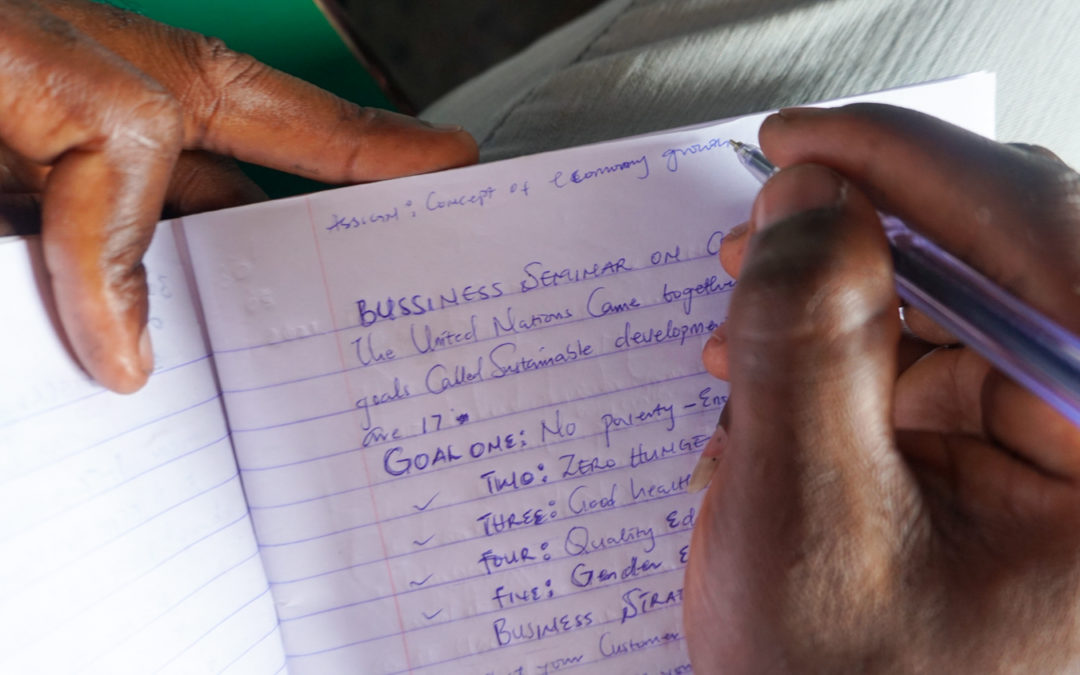 Assign: Concept of economy growth
BUSSINESS SEMINAR ON
The United Nations Came together
goals Called Sustainable developmen
are 17
GOAL ONE: No poverty - En
TWO: ZERO HUNGE
THREE: Good health
FOUR: Quality Ed
FIVE: Gender E
BUSINESS STRAT
your Customer
your